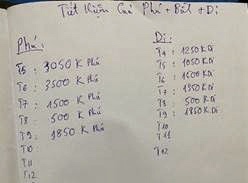 Tiết Kiệm Của Phá + Bét + Di
Phá:
T5 : 3050 K Phá
T6 : 3500 K Phá
T7 : 1500 K Phá
T8 : 500 K Phá
T9 : 1850 K Phá
T10 :
T11
T12
Di:
T4 : 1250 K Di
T5 : 1050 K Di
T6 : 1500 K Di
T7 : 1350 K Di
T8 : 500 K Di
T9 : 1850 K Di
T10
T11
T12